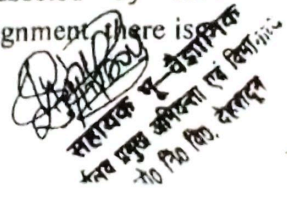 gnment, there is
सहायक भू-वैज्ञानिक
प्रमुख अभियन्ता एवं
लो० नि० वि०, देहरादून